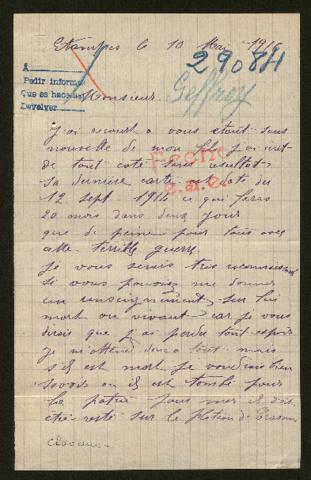 Etampes le 10 Mai 1916
29084
A
Pedir informe
Que se haga
Devolver
Monsieur
Geffroy
j'ai recourt a vous etant sans
nouvelle de mon fils j'ai ecrit
de tout coté sans resultat
Hecho
sa dernière carte est daté du
12 sept. 1914 ce qui feras
20 mois dans deux jour
que de peine pour tous avec
cette terrible guerre.
je vous serais tres reconnaissant
si vous pouviez me donner
un renseignement sur lui
mort ou vivant car je vous
dirais que j'ai perdu tout espoir
je m'attend donc a tout mais
s'il est mort je voudrais bien
savoir ou il est tombé pour
la patrie pour moi il doit
etre resté sur le plateau de Craonne